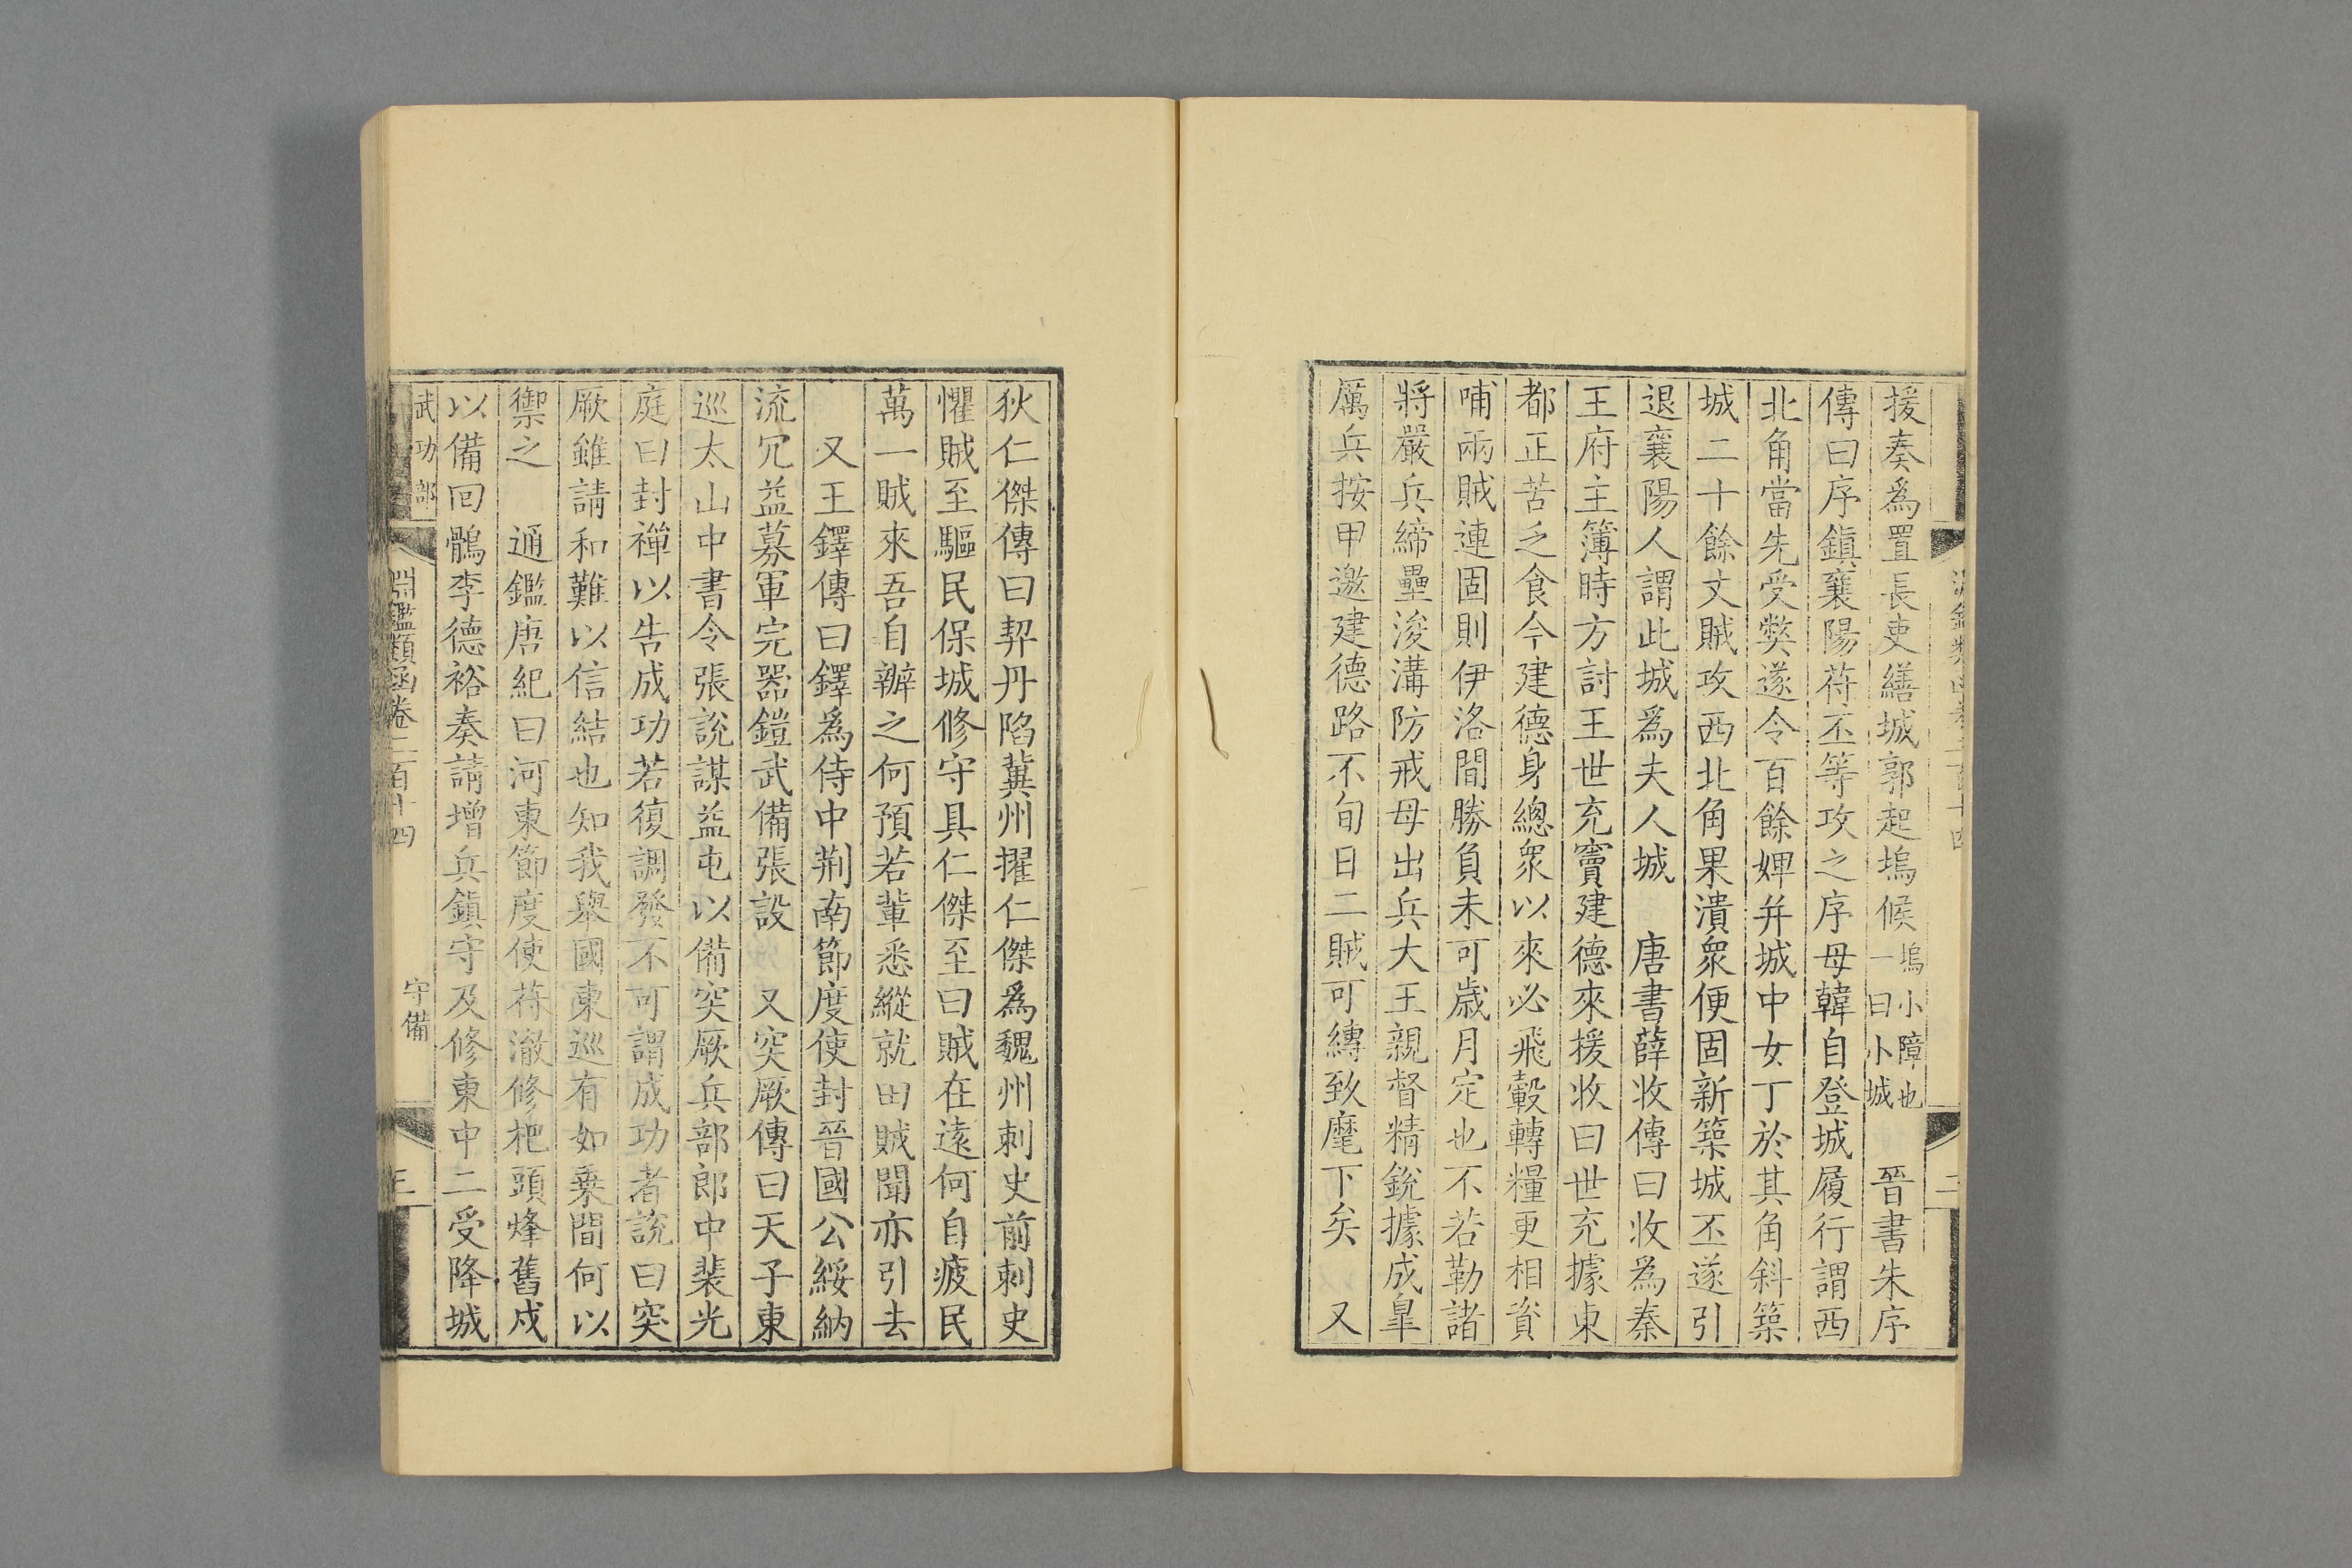 援奏爲置長吏繕城郭起塢候塢小障也一曰小城　晉書朱序
傳曰序鎭襄陽苻丕等攻之序母韓自登城履行謂西
北角當先受弊遂令百餘婢幷城中女丁於其角斜築
城二十餘丈賊攻西北角果潰衆便固新築城丕遂引
退襄陽人謂此城爲夫人城　唐書薛收傳曰收爲秦
王府主簿時方討王世充竇建德來援收曰世充據東
都正苦乏食今建德身總衆以來必飛轂轉糧更相資
哺兩賊連固則伊洛間勝負未可歲月定也不若勒諸
將嚴兵締壘浚溝防戒毋出兵大王親督精銳據成皐
厲兵按甲邀建德路不旬日二賊可縛致麾下矣　又
狄仁傑傳曰契丹陷冀州擢仁傑爲魏州刺史前刺史
懼賊至驅民保城修守具仁傑至曰賊在遠何自疲民
萬一賊來吾自辦之何預若輩悉縱就田賊聞亦引去
　又王鐸傳曰鐸爲侍中荆南節度使封晉國公綏納
流冗益募軍完器鎧武備張設　又突厥傳曰天子東
巡太山中書令張說謀益屯以備突厥兵部郎中裴光
庭曰封禪以告成功若復調發不可謂成功者說曰突
厥雖請和難以信結也知我舉國東巡有如乗間何以
禦之　通鑑唐紀曰河東節度使苻澈修杷頭烽舊戍
以備回鶻李德裕奏請增兵鎭守及修東中二受降城
武功部　淵鑑類函卷二百十四　守備　三